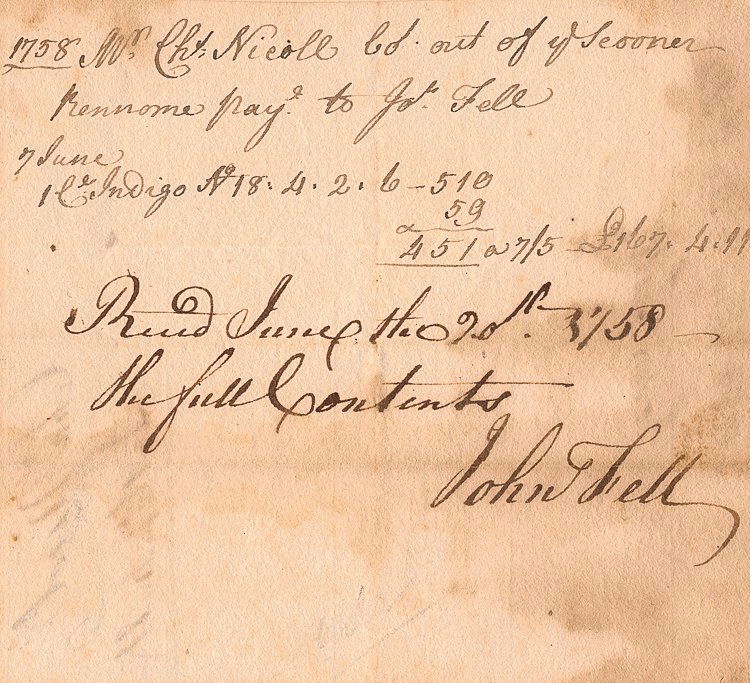 1758 Mr. Chs. Nicoll bd. out of ye Scooner
Rennome pay. to Jon. Fell
7 June
1 Cr. Indigo No. 18. 4. 2. 6 - 510
59
451 a 7/5 £167. 4. 11
Recd June the 20th. 1758
the full Contents
John Fell